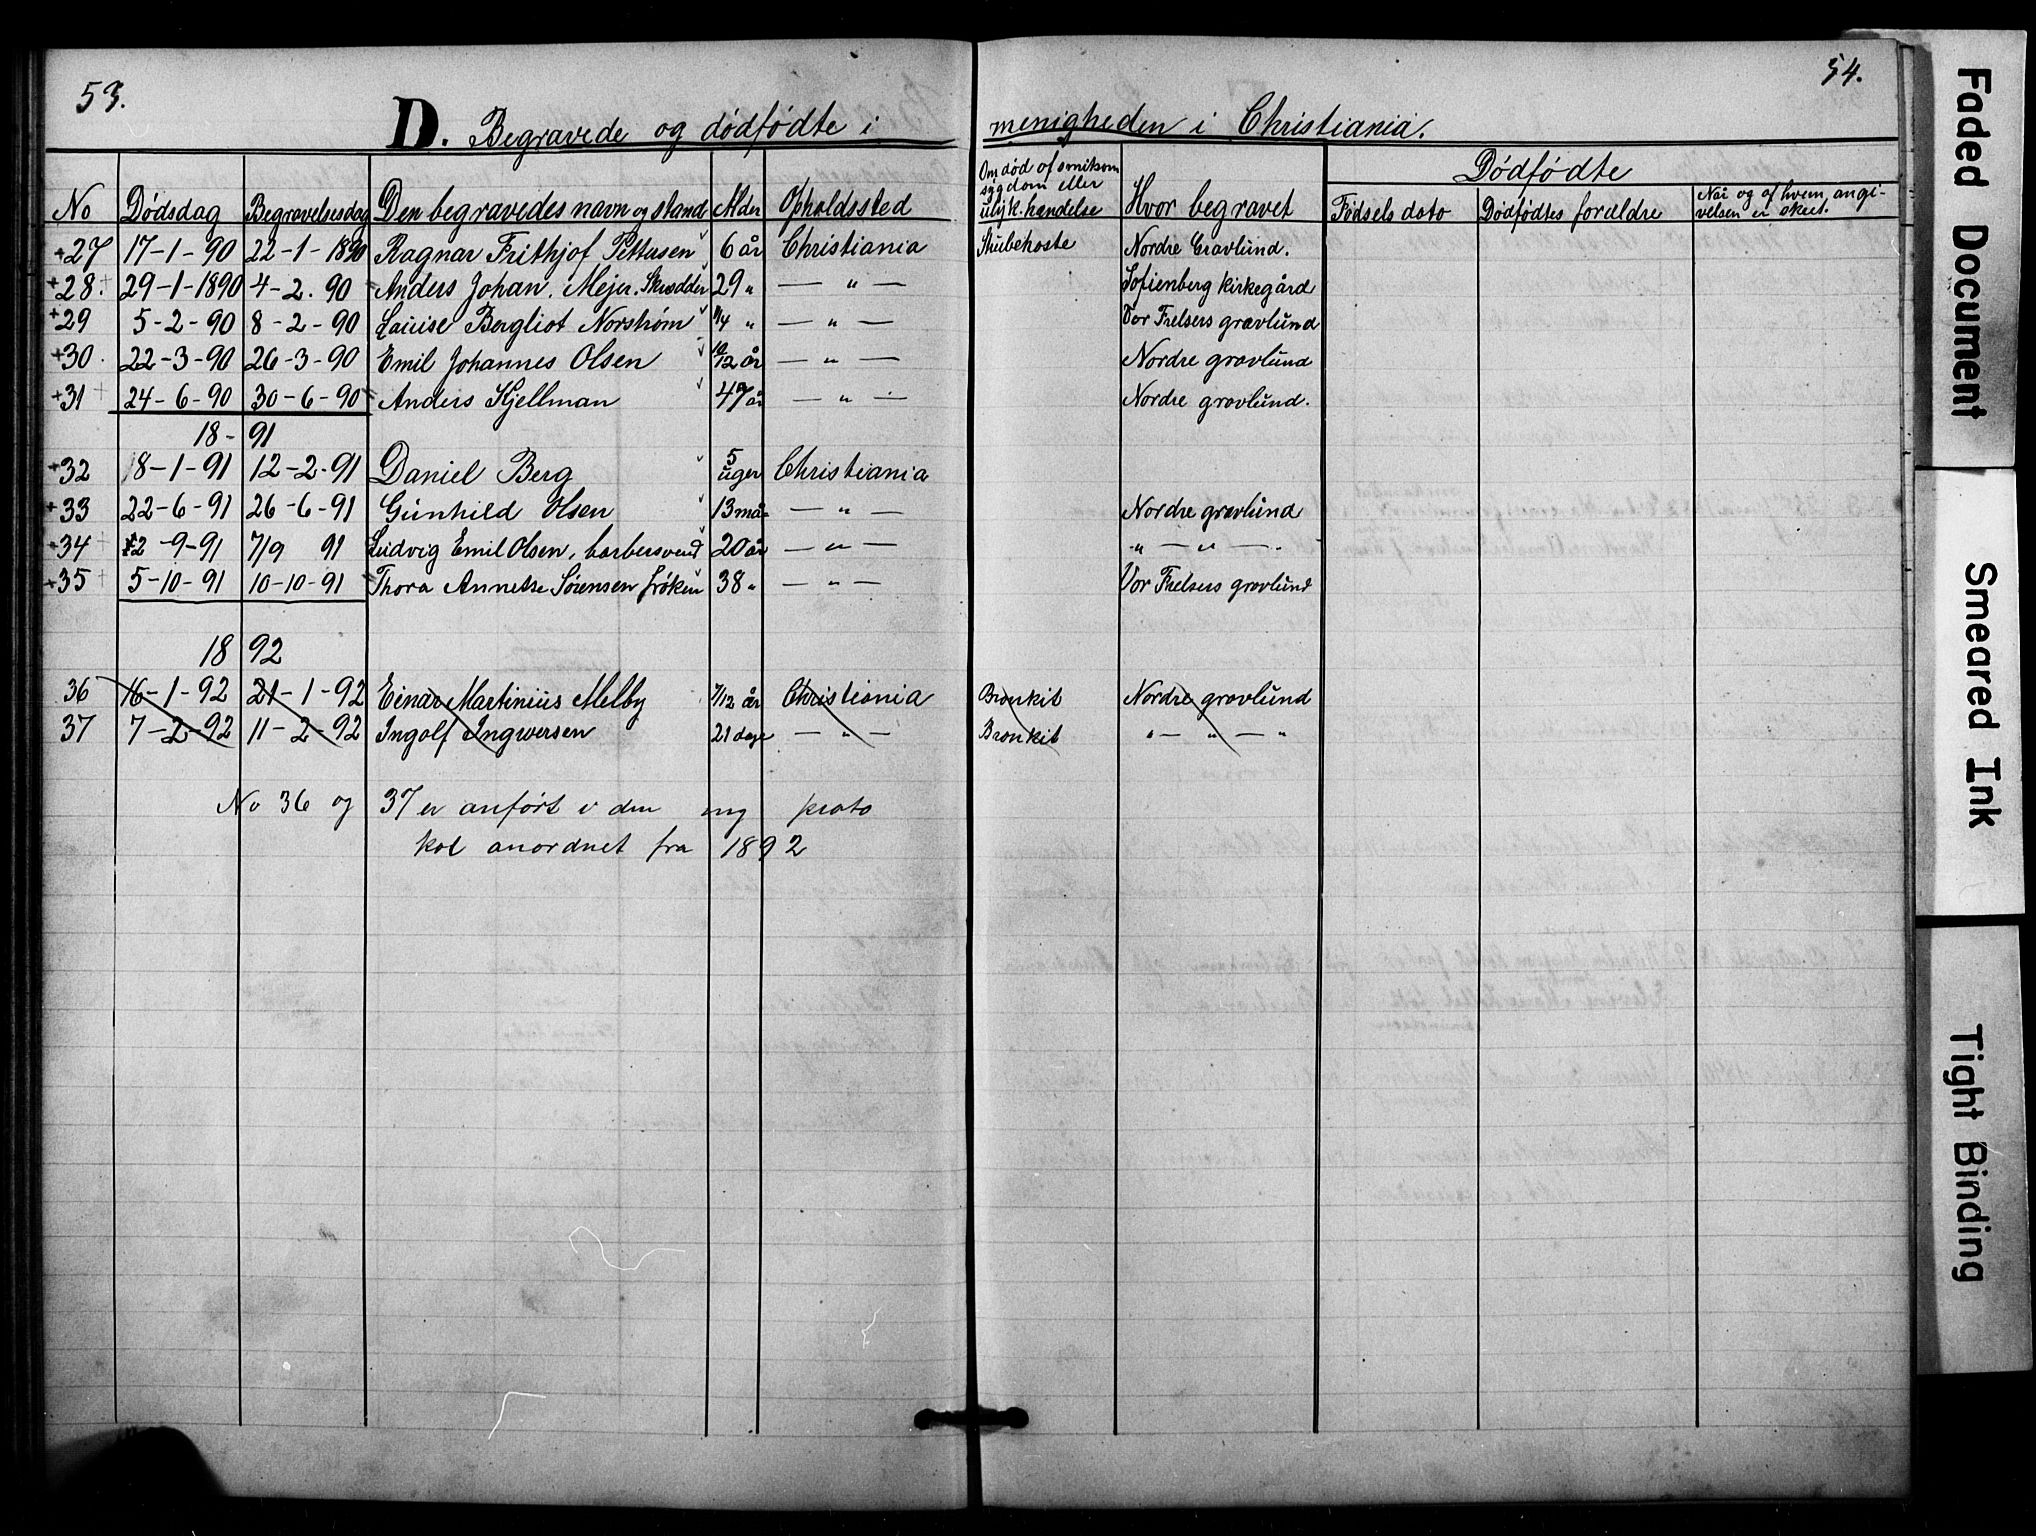 53.
54.
D. Begravede og dødfødte i menigheden i Christiania.
No Dødsdag Begravelsesdag Den begravedes navn og stand Alder Opholdssted Om død af smitsom sygdom eller ulyk. hændelse Hvor begravet Dødfødte
Fødsels dato Dødfødtes foreldre Når og af hvem angivelsen er skeet.
+27 17-1-90 22-1-1890 Ragnar Frithjof Pettersen 6 år Christiania Skubehoste Nordre Gravlund.
+28. 29-1-1890 4-2.90 Anders Johan. Mejer. Skrædder 29 " — " — Sofienberg Kirkegård
+29 5-2-90 8-2-90 Louise Bergliot Norstrøm " — " — Vor Frelsers gravlund
+30. 22-3-90 26-3-90 Emil Johannes Olsen 10/12 år — " — Nordre gravlund
+31 24-6-90 30-6-90 Anders Kjellman 47 år — " — Nordre gravlund.
18-91
+32 18-1-91 12-2-91 Daniel Berg 5 uger Christiania
+33 22-6-91 26-6-91 Gunhild Olsen 13 må. — " — Nordre gravlund
+34 2-9-91 7/9 91 Ludvig Emil Olsen, barbersvend 20 år — " — " — " — .
+35 5-10-91 10-10-91 Thora Annette Sørensen frøken 38 " — " — Vor Frelsers gravlund
1892
36 16-1-92 21-1-92 Einar Martinius Melby 7/12 år Christiania Bronkit Nordre gravlund
37 7-2-92 11-2-92 Ingolf Ingwersen 21 dage — " — Bronkit " — " — "
No 36 og 37 er anført i den ny proto
kol anordnet fra 1892
Faded Document
Smeared Ink
Tight Binding